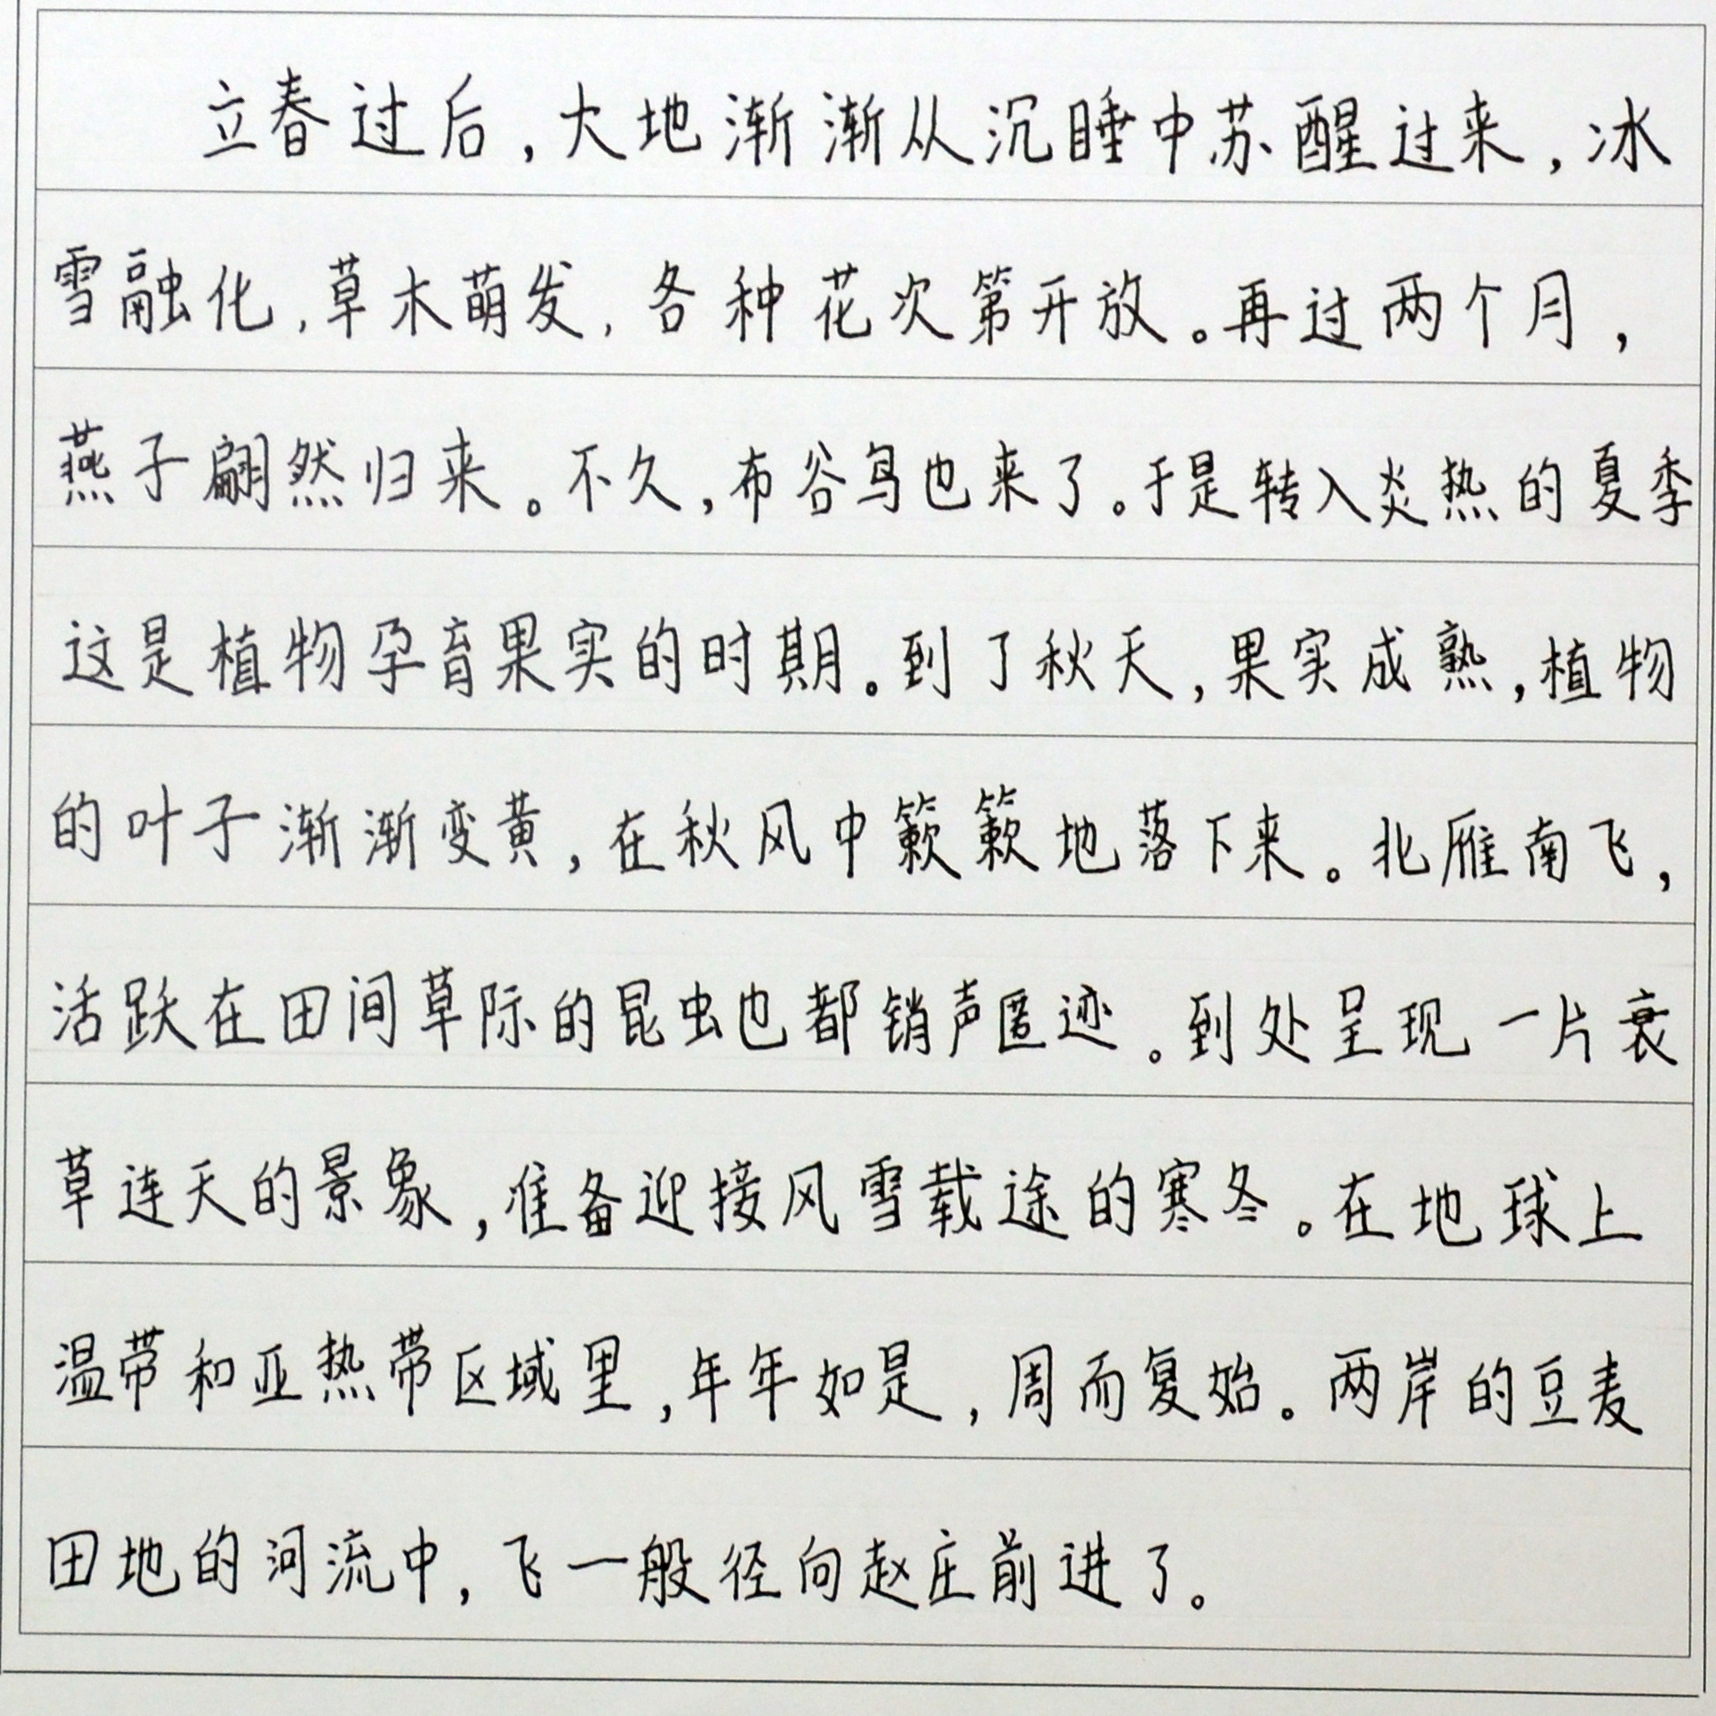 立春过后,大地渐渐从沉睡中苏醒过来,冰
雪融化,草木萌发,各种花次第开放。再过两个月,
燕子翩然归来。不久,布谷鸟也来了。于是转入炎热的夏季
这是植物孕育果实的时期。到了秋天,果实成熟,植物
的叶子渐渐变黄,在秋风中簌簌地落下来。北雁南飞,
活跃在田间草际的昆虫也都销声匿迹。到处呈现一片衰
草连天的景象,准备迎接风雪载途的寒冬。在地球上
温带和亚热带区域里,年年如是,周而复始。两岸的豆麦
田地的河流中,飞一般径向赵庄前进了。